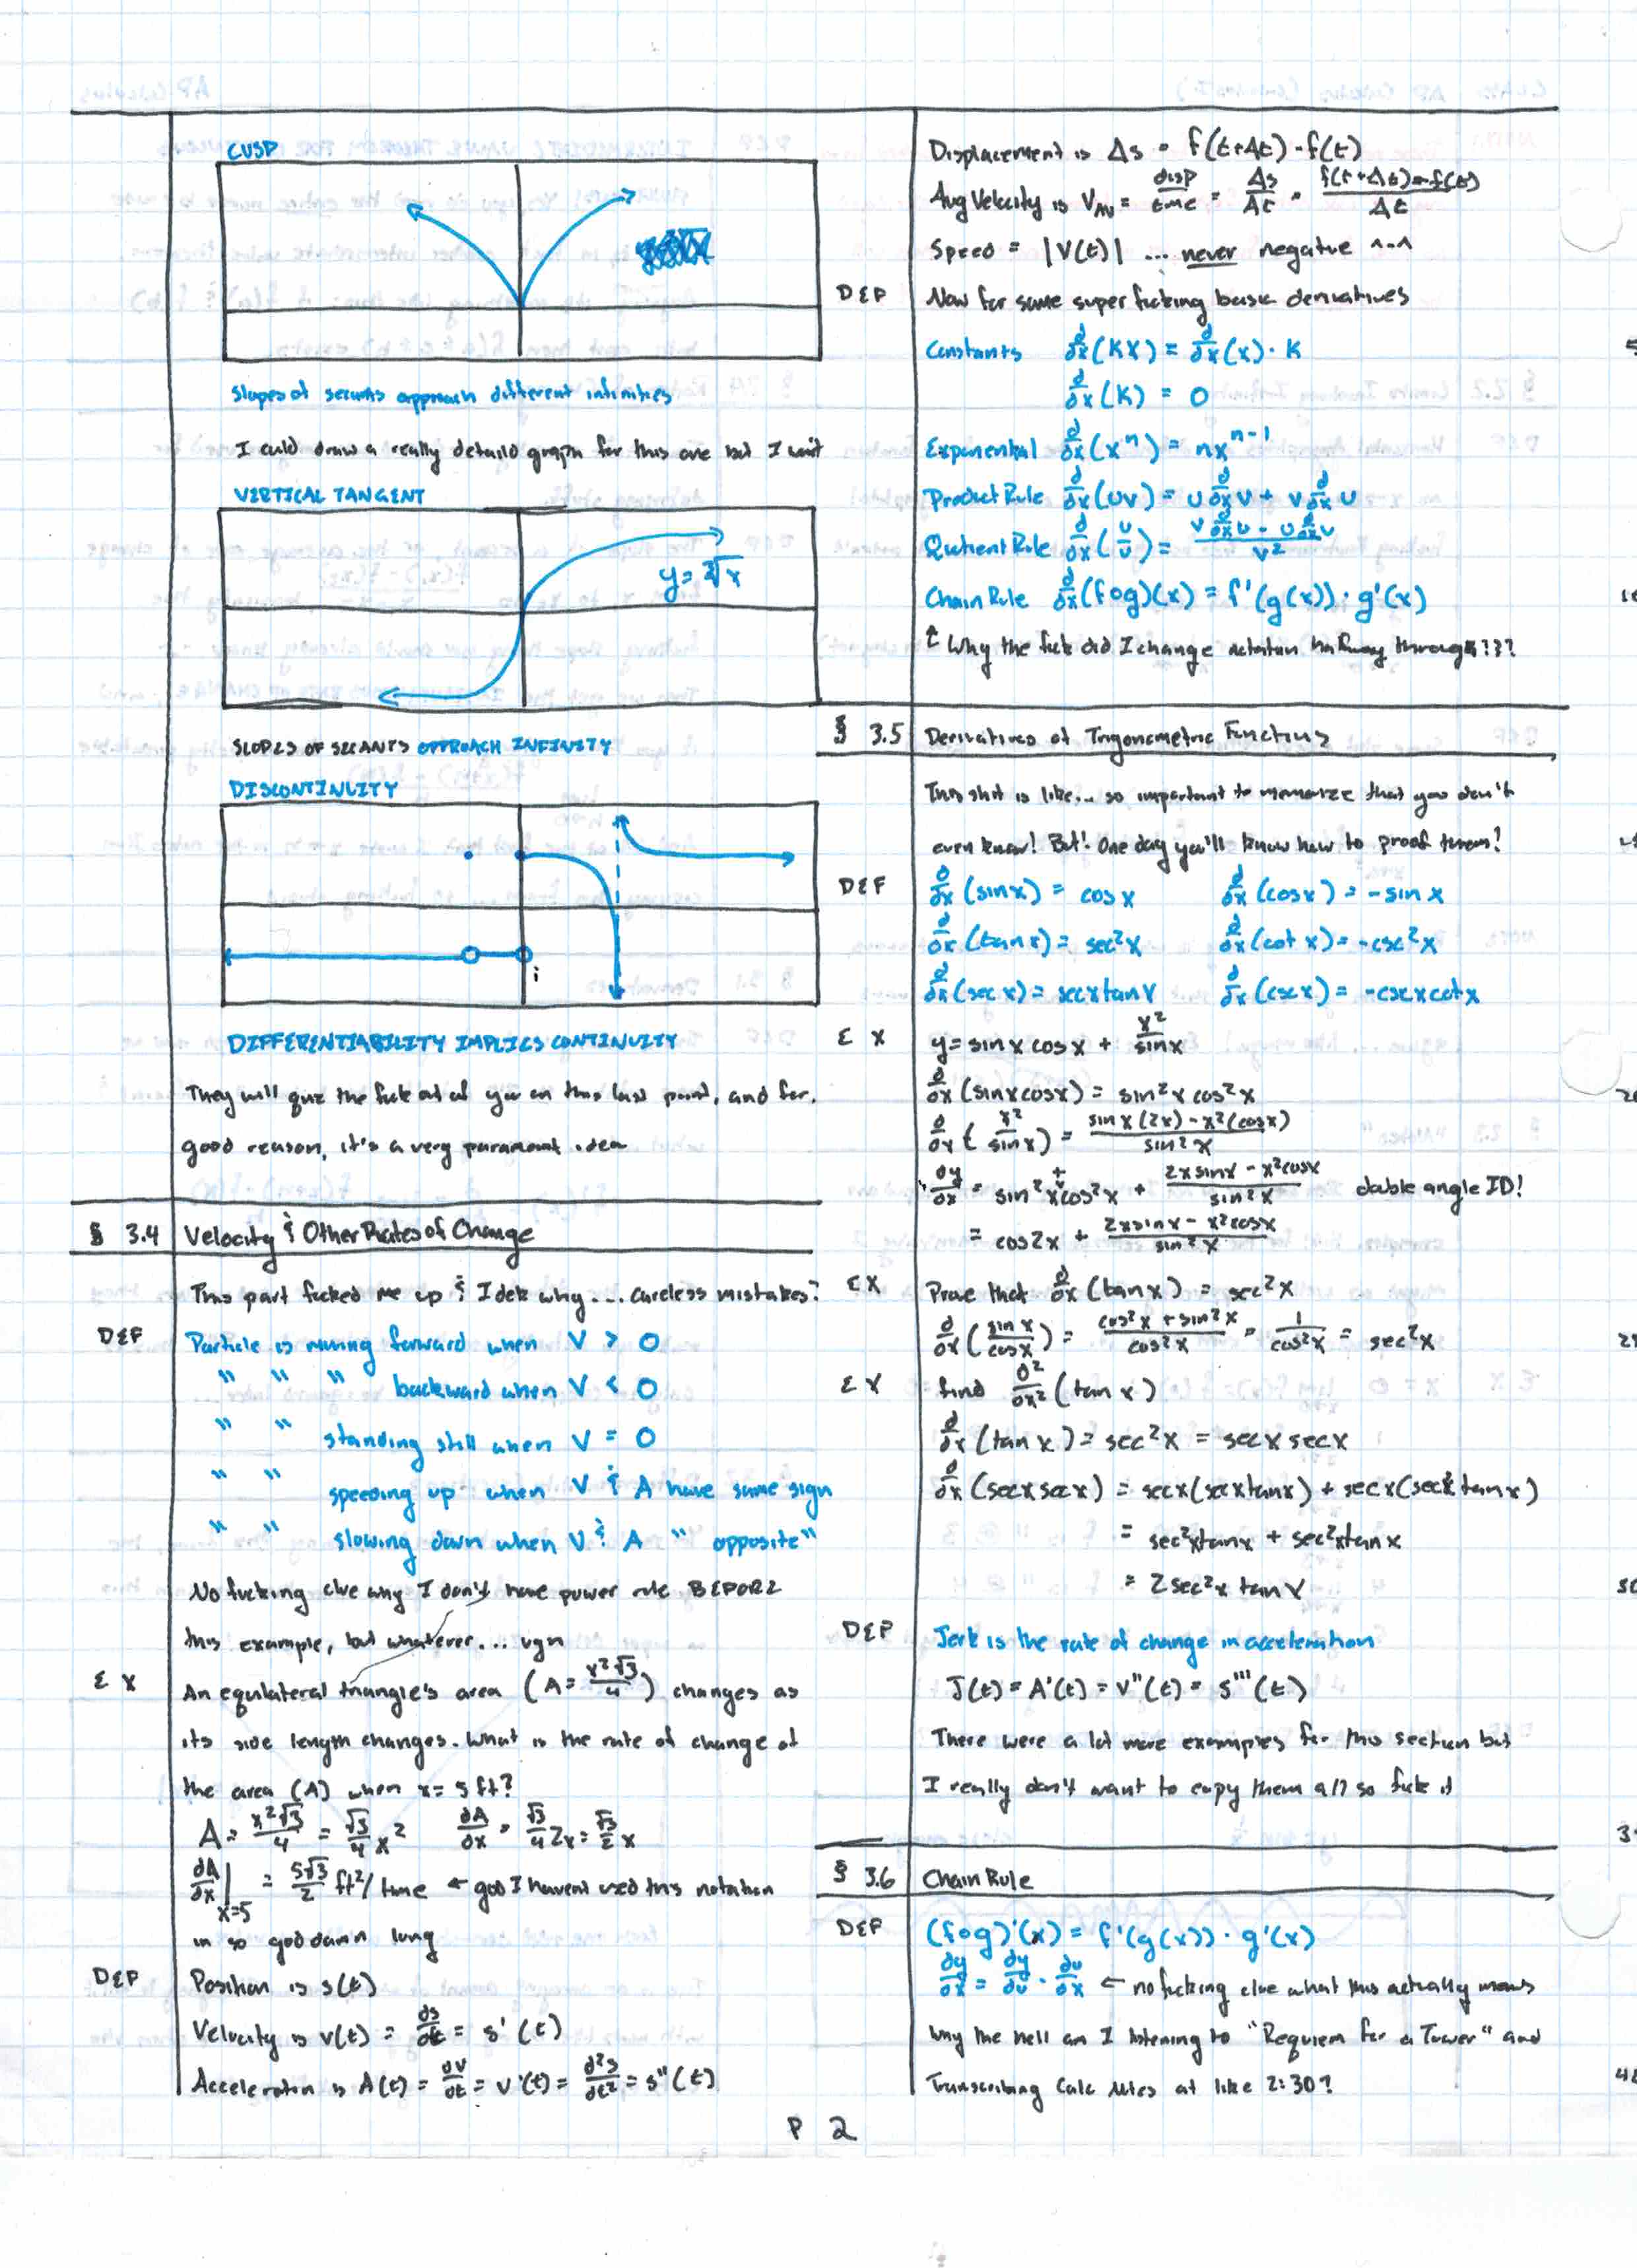 CUSP
Slopes of secants approach different infinities
I could draw a really detaild graph for this one but I won't
VERTICAL TANGENT
y = ³√x
SLOPES OF SECANTS APPROACH INFINITY
DISCONTINUITY
DIFFERENTIABILITY IMPLIES CONTINUITY
They will quiz the fuck out of you on this last point, and for
good reason, it's a very paramount idea
§ 3.4 Velocity & Other Rates of Change
This part fucked me up & I dek why... careless mistakes?
DEF Particle is moving forward when V > 0
" " " backward when V < 0
" " standing still when V = 0
" " speeding up when V & A have same sign
" " slowing down when V & A " opposite "
No fucking clue why I don't have power rule BEFORE
this example, but whatever... ugn
EX An equilateral triangle's area (A = x²√3/4) changes as
its side length changes. What is the rate of change of
the area (A) when x = 5 ft?
A = x²√3/4 = √3/4 x² dA/dx = √3/4 2x = √3/2 x
dA/dx |x=5 = 5√3/2 ft²/time ← god I havent used this notation
in so goddamn long
DEF Position is s(t)
Velocity is v(t) = ds/dt = s'(t)
Acceleration is A(t) = dv/dt = v'(t) = d²s/dt² = s"(t)
Displacement is Δs = f(t+Δt) - f(t)
Avg Velocity is VAV = disp/time = Δs/Δt = f(t+Δt)-f(t)/Δt
Speed = |V(t)| ... never negative ^-^
DEF Now for some super fucking basic derivatives
Constants d/dx(KX) = d/dx(x)·K
d/dx(K) = 0
Exponential d/dx(xⁿ) = nxⁿ⁻¹
Product Rule d/dx(uv) = u d/dx v + v d/dx u
Quotient Rule d/dx(u/v) = v d/dx u - u d/dx v / v²
Chain Rule d/dx(fog)(x) = f'(g(x))·g'(x)
↑ Why the fuck did I change notation halfway through???
§ 3.5 Derivatives of Trigonometric Functions
This shit is like... so important to memorize that you don't
even know! But! One day you'll know how to proof them!
DEF d/dx(sinx) = cosx d/dx(cosx) = -sinx
d/dx(tanx) = sec²x d/dx(cotx) = -csc²x
d/dx(secx) = secxtanx d/dx(cscx) = -cscxcotx
EX y = sinxcosx + x²/sinx
d/dx(sinxcosx) = sin²x cos²x
d/dx(x²/sinx) = sinx(2x)-x²(cosx)/sin²x
dy/dx = sin²x + cos²x + 2xsinx - x²cosx/sin²x double angle ID!
= cos2x + 2xsinx - x²cosx/sin²x
EX Prove that d/dx(tanx) = sec²x
d/dx(sinx/cosx) = cos²x + sin²x/cos²x = 1/cos²x = sec²x
EX find d²/dx²(tanx)
d/dx(tanx) = sec²x = secx secx
d/dx(secxsecx) = secx(secxtanx) + secx(secxtanx)
= sec²xtanx + sec²xtanx
= 2sec²x tanx
DEF Jerk is the rate of change in acceleration
J(t) = A'(t) = v"(t) = s'''(t)
There were a lot more examples for this section but
I really don't want to copy them all so fuck it
§ 3.6 Chain Rule
DEF (fog)'(x) = f'(g(x))·g'(x)
dy/dx = dy/du · du/dx ← no fucking clue what this actually means
Why the hell am I listening to "Requiem for a Tower" and
Transcribing Calc Notes at like 2:30?
P 2